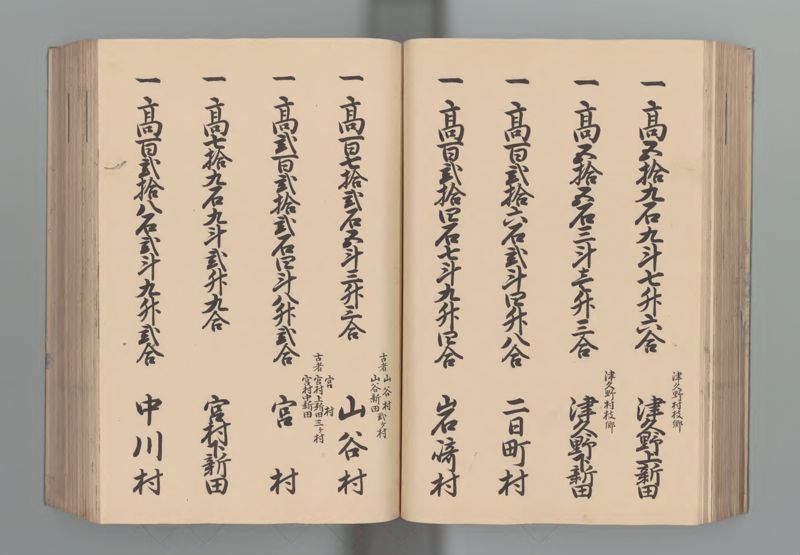 一 高五拾九石九斗七升六合 津久野村枝郷 津久野上新田
一 高五拾五石三斗壱升三合 津久野村枝郷 津久野下新田
一 高百弐拾六石弐斗四升八合 二日町村
一 高百弐拾四石七斗九升四合 岩崎村
一 高百七拾弐石五斗三升三合 古者 山谷村 山谷新田 弐ヶ村 山谷村
一 高弐百弐拾弐石四斗八升弐合 古者 宮村 宮村上新田 宮村中新田 三ヶ村 宮村
一 高七拾九石九斗弐升九合 宮村下新田
一 高百弐拾八石弐斗九升弐合 中川村